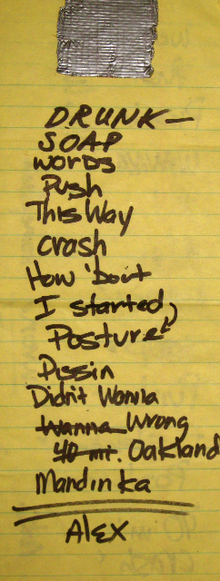 DRUNK—
SOAP
WORDS
Push
This Way
Crash
How 'bout
I started
Posture
Pissin
Didn't Wanna
Wanna Wrong
40 mt. Oakland
Mandinka
ALEX